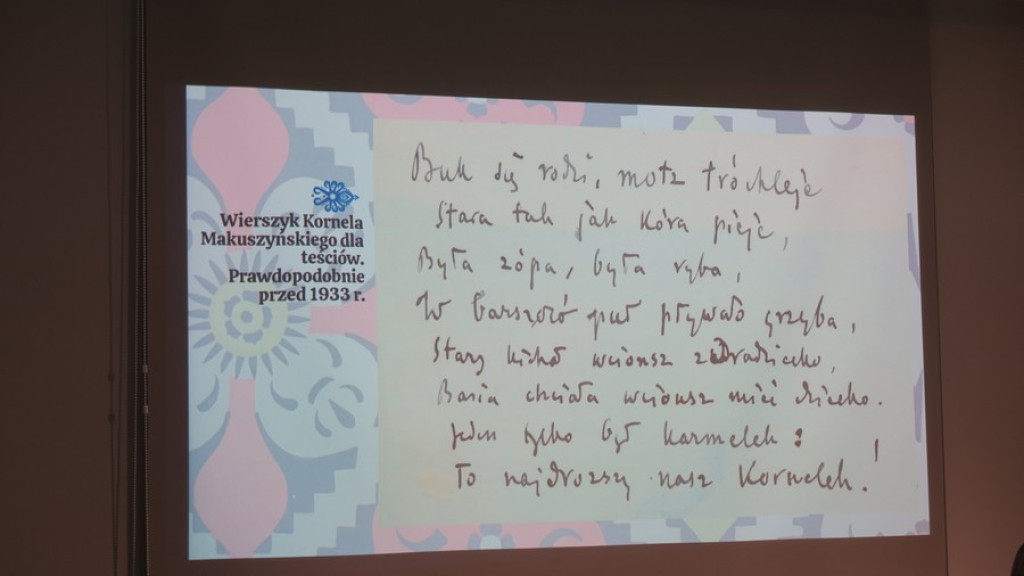 Wierszyk Kornela
Makuszyńskiego dla
teściów.
Prawdopodobnie
przed 1933 r.
Buk się rodzi, motz tróchleje
Stara tak jak kóra pieje,
Była zópa, była ryba,
W barszczó puł pływało grzyba,
Stary kichał wcionsz zdradziecko,
Basia chciała wcionsz mieć dziecko.
Jeden tylko był karmelek:
To najdrozszy nasz Kornelek.!